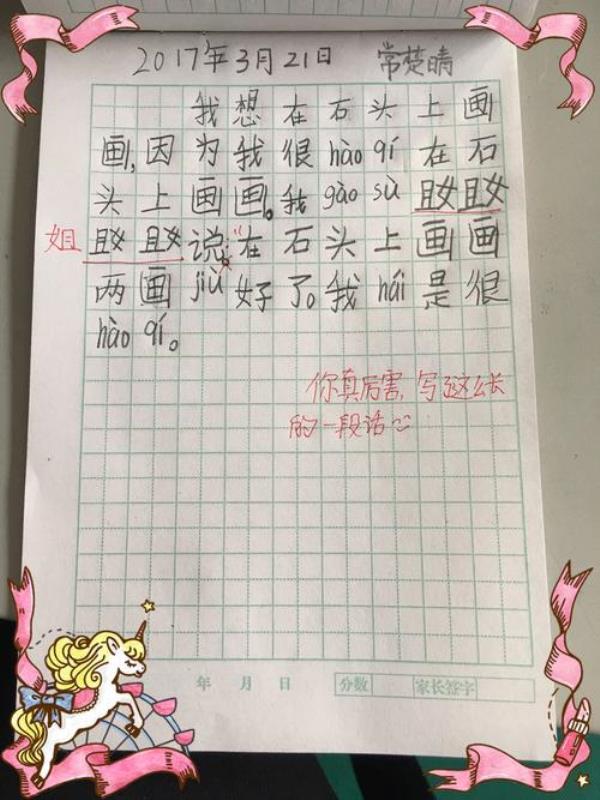 2017年3月21日 常楚晴
我想在石头上画
画,因为我很hào qí在石
头上画画。我gào sù且女且女
姐 且女且女说:“在石头上画画
两画jiù好了。我hái是很
hào qí。
你真厉害,写了这么长
的一段话
年 月 日 分数 家长签字